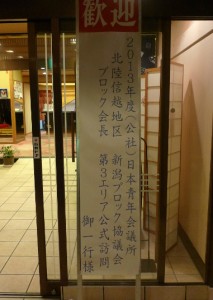 歓迎
2013年度(公社)日本青年会議所
北陸信越地区 新潟ブロック協議会
ブロック会長 第3エリア公式訪問
御一行様